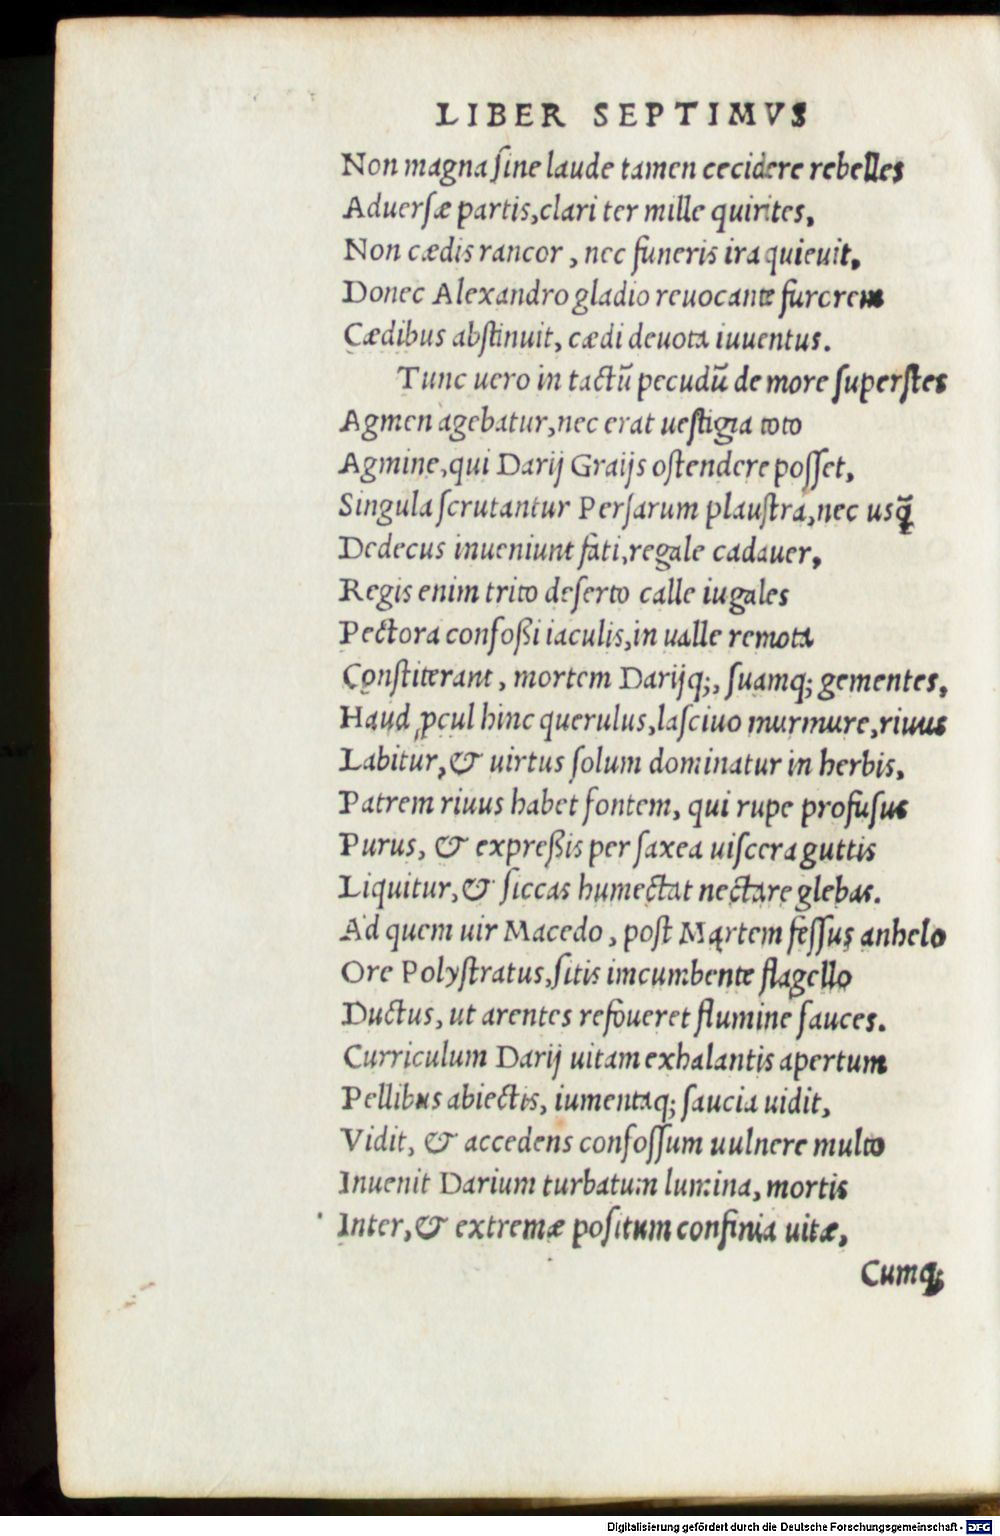 LIBER SEPTIMVS
Non magna ſine laude tamen cecidere rebelles
Aduerſæ partis, clari ter mille quirites,
Non cædis rancor, nec funeris ira quieuit,
Donec Alexandro gladio reuocante furorem
Cædibus abſtinuit, cædi deuota iuuentus.
Tunc uero in tactū pecudū de more ſuperſtes
Agmen agebatur, nec erat ueſtigia toto
Agmine, qui Darij Graijs oſtendere poſſet,
Singula ſcrutantur Perſarum plauſtra, nec usq̃
Dedecus inueniunt fati, regale cadauer,
Regis enim trito deſerto calle iugales
Pectora confoßi iaculis, in ualle remota
Conſtiterant, mortem Darijq;, ſuamq; gementes,
Haud ꝓcul hinc querulus, laſciuo murmure, riuus
Labitur, & uirtus ſolum dominatur in herbis,
Patrem riuus habet fontem, qui rupe profuſus
Purus, & expreßis per ſaxea uiſcera guttis
Liquitur, & ſiccas humectat nectare glebas.
Ad quem uir Macedo, poſt Martem feſſus anhelo
Ore Polyſtratus, ſitis imcumbente flagello
Ductus, ut arentes refoueret flumine fauces.
Curriculum Darij uitam exhalantis apertum
Pellibus abiectis, iumentaq; ſaucia uidit,
Vidit, & accedens confoſſum uulnere multo
Inuenit Darium turbatum lumina, mortis
Inter, & extremæ poſitum confinia uitæ,
Cumq;
Digitalisierung gefördert durch die Deutsche Forschungsgemeinschaft - DFG